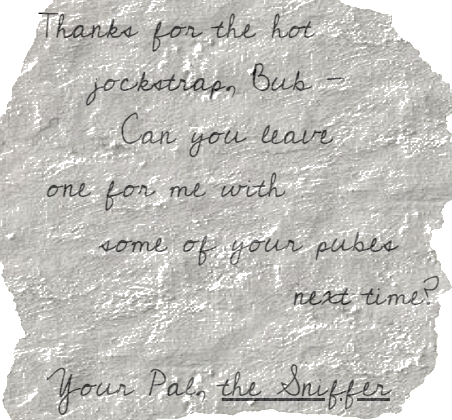 Thanks for the hot
jockstrap, Bub –
Can you leave
one for me with
some of your pubes
next time?
Your Pal, the Sniffer